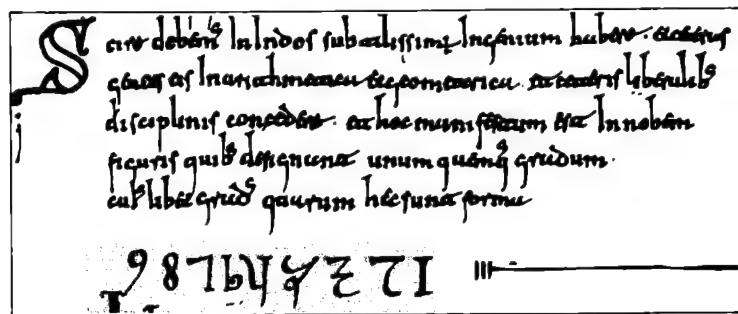 Scire debem⁹ In Indos subtilissimū Ingenium habere et ceteras
gentes eis In arithmetica et geometrica et ceteris liberalibꝰ
disciplinis concedere et hoc manifestum est In nobem
figuris quibꝰ designant unum quemqꝫ gradum
cuiꝰlibet gradꝰ quarum hec sunt forma
9 8 7 6 5 4 3 2 1